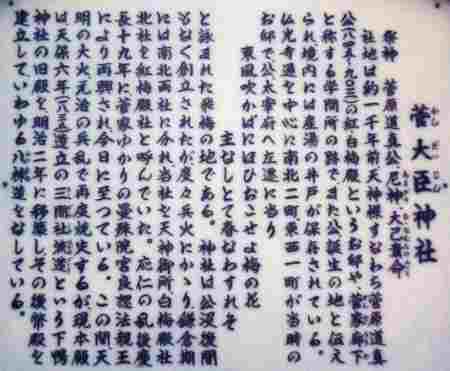 菅大臣神社
祭神　菅原道真公　尼神　大己貴命
社地は約一千年前天神様すなわち菅原道真
公(八四五～九〇三)の紅白梅殿というお邸や、菅家廊下
と称する学問所の跡でまた公誕生の地と伝え
られ境内には産湯の井戸が保存されている。
仏光寺通を中心に南北二町東西一町が当時の
お邸で公太宰府へ左遷に当り
東風吹かばにほひおこせよ梅の花
主なしとて春なわすれそ
と詠まれた飛梅の地である。　神社は公没後間
もなく創立されたが度々兵火にかゝり鎌倉期
には南北両社に分れ当社を天神御所白梅殿社
北社を紅梅殿社と呼んでいた。応仁の乱後慶
長十九年に菅家ゆかりの曼殊院宮良恕法親王
により再興され今日に至っている。この間天
明の大火元治の兵乱で再度焼失するが現本殿
は天保六年(一八三五)造立の三間社流造という下鴨
神社の旧殿を明治二年に移築しその後幣殿を
建立していわゆる八棟造をなしている。